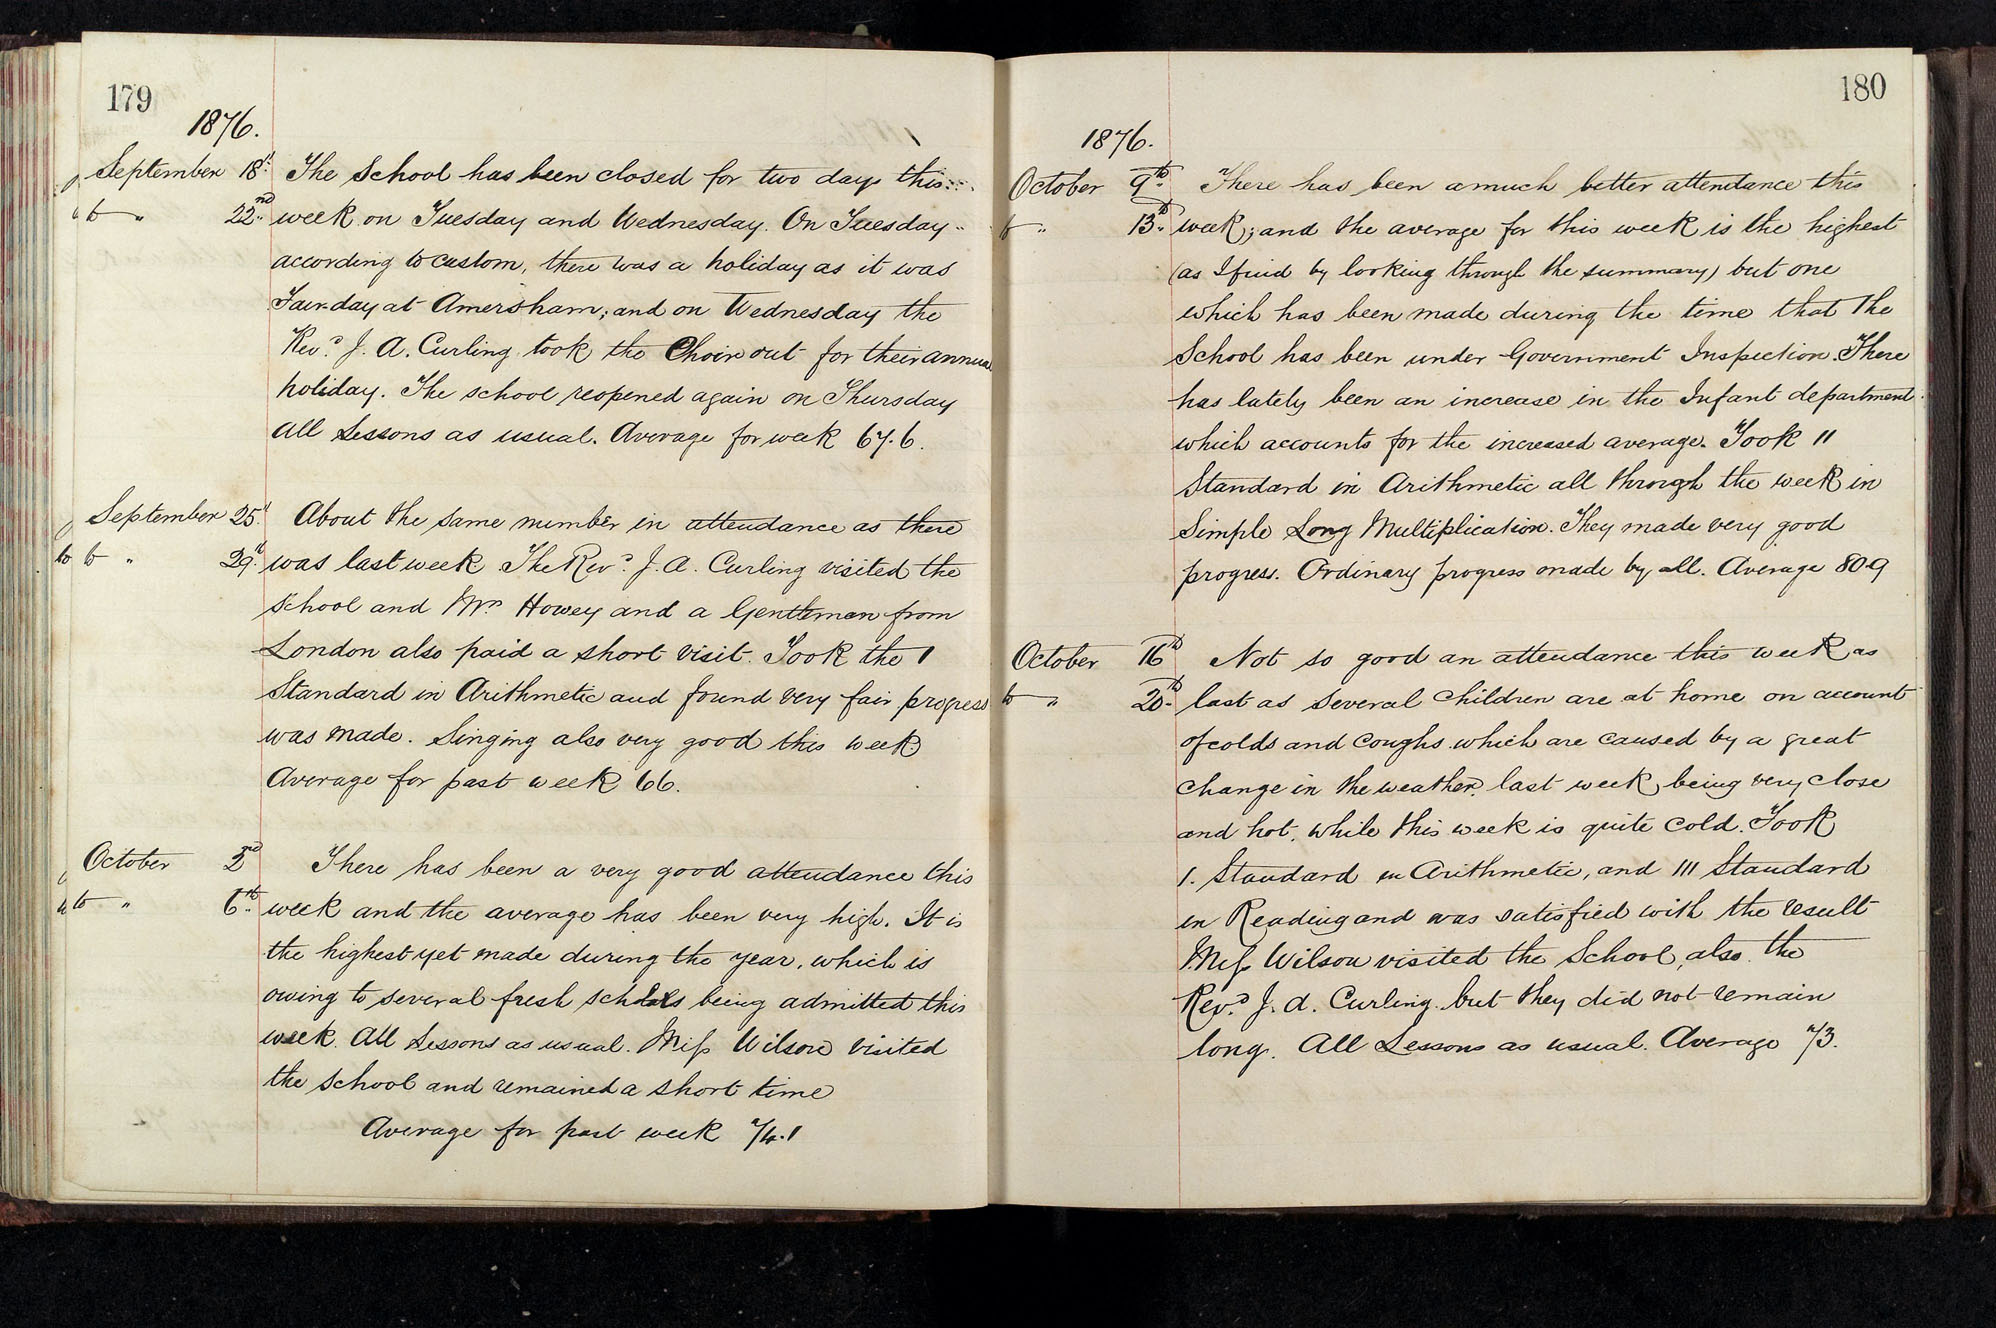 179
1876.
September 18th The School has been closed for two days this
to " 22nd week on Tuesday and Wednesday. On Tuesday
according to custom, there was a holiday as it was
Fair-day at Amersham; and on Wednesday the
Revd. J. A. Curling took the Choir out for their annual
holiday. The school reopened again on Thursday
All Lessons as usual. Average for week 67.6.
September 25th About the same number in attendance as there
to " 29th was last week The Revd. J. A. Curling visited the
School and Mrs. Howey and a Gentleman from
London also paid a short visit. Took the I
Standard in Arithmetic and found very fair progress
was made. Singing also very good this week
Average for past week 66.
October 2nd There has been a very good attendance this
to " 6th week and the average has been very high. It is
the highest yet made during the year, which is
owing to several fresh scholars being admitted this
week. All Lessons as usual. Miss Wilson visited
the School and remained a short time
Average for past week 74.1
180
1876.
October 9th There has been a much better attendance this
to " 13th week; and the average for this week is the highest
(as I find by looking through the summary) but one
which has been made during the time that the
School has been under Government Inspection. There
has lately been an increase in the Infant department
which accounts for the increased average. Took II
Standard in Arithmetic all through the week in
Simple Long Multiplication. They made very good
progress. Ordinary progress made by all. Average 80.9
October 16th Not so good an attendance this week as
to " 20th last as several children are at home on account
of colds and coughs which are caused by a great
change in the weather, last week being very close
and hot, while this week is quite cold. Took
I. Standard in Arithmetic, and III Standard
in Reading and was satisfied with the result
Miss Wilson visited the School, also the
Revd. J. A. Curling but they did not remain
long. All Lessons as usual. Average 73.